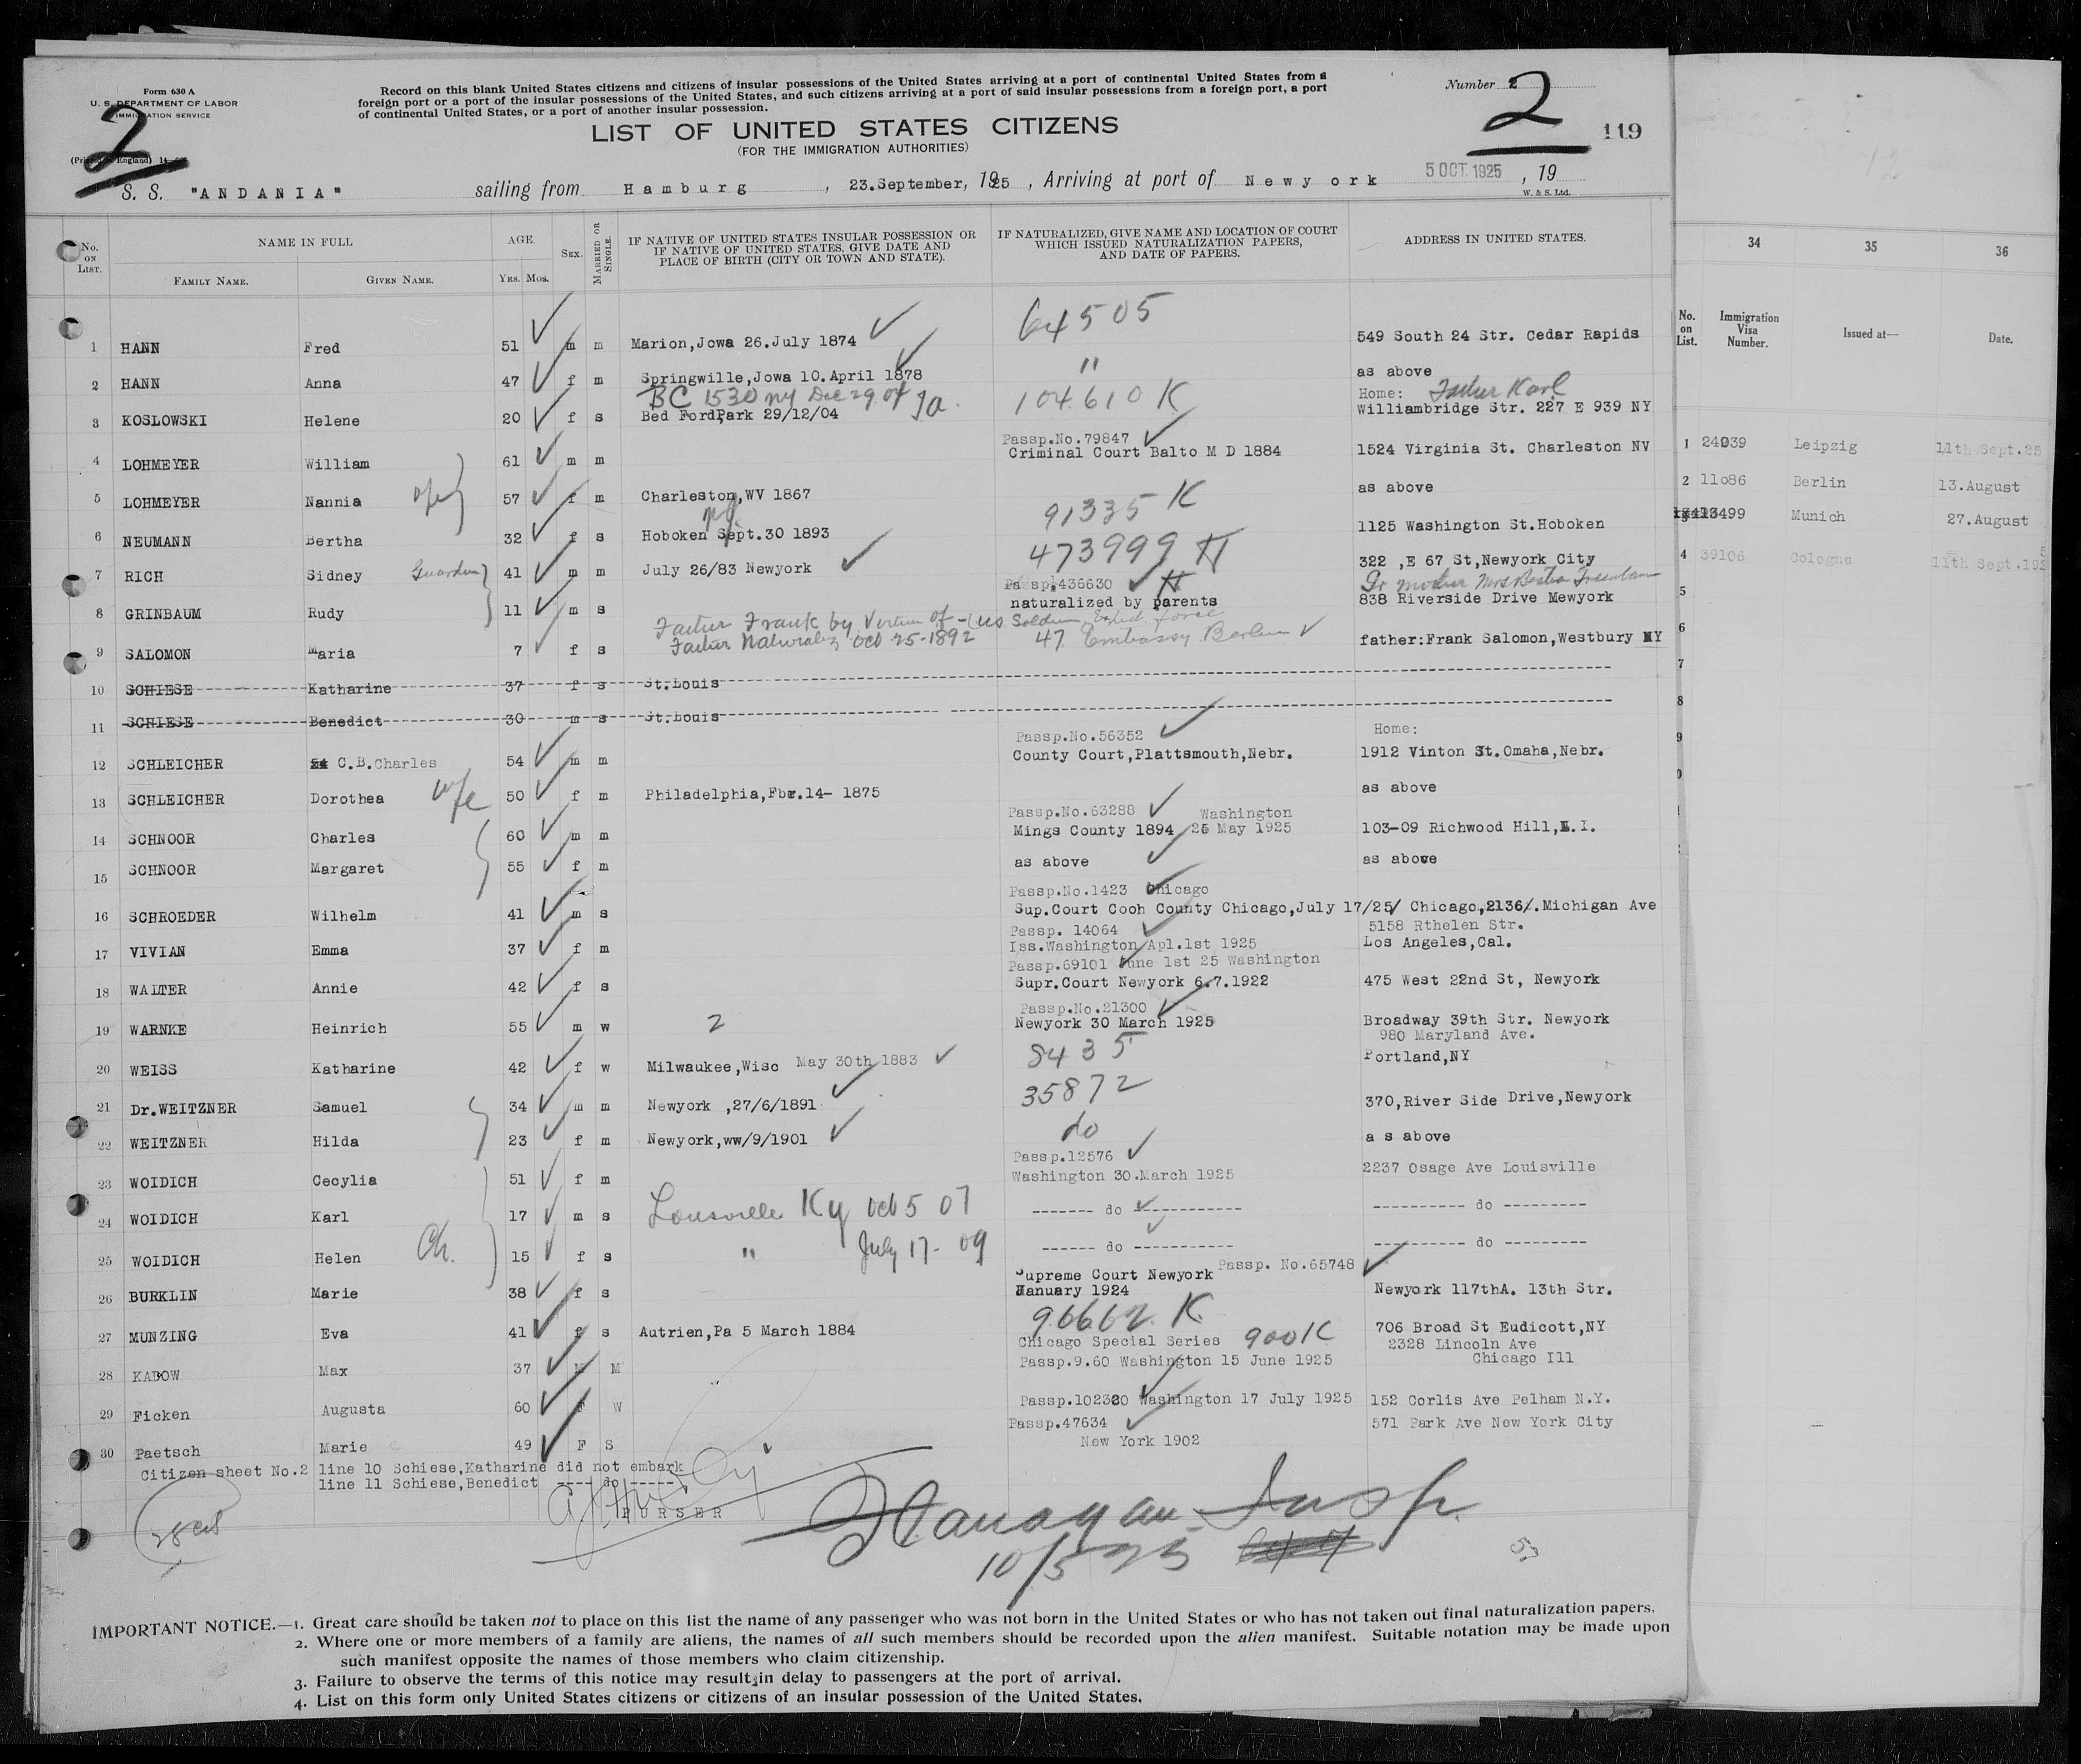 Form 630 A
U. S. DEPARTMENT OF LABOR
IMMIGRATION SERVICE
2
Record on this blank United States citizens and citizens of insular possessions of the United States arriving at a port of continental United States from a
foreign port or a port of the insular possessions of the United States, and such citizens arriving at a port of said insular possessions from a foreign port, a port
of continental United States, or a port of another insular possession.
Number 2
2
119
LIST OF UNITED STATES CITIZENS
(FOR THE IMMIGRATION AUTHORITIES)
S. S. "ANDANIA" sailing from Hamburg, 23.September, 1925, Arriving at port of Newyork 5 OCT 1925, 19
W. & S. Ltd.
No. ON LIST. NAME IN FULL FAMILY NAME. GIVEN NAME. AGE. YRS. MOS. SEX. MARRIED OR SINGLE.
IF NATIVE OF UNITED STATES INSULAR POSSESSION OR
IF NATIVE OF UNITED STATES, GIVE DATE AND
PLACE OF BIRTH (CITY OR TOWN AND STATE).
IF NATURALIZED, GIVE NAME AND LOCATION OF COURT
WHICH ISSUED NATURALIZATION PAPERS,
AND DATE OF PAPERS.
ADDRESS IN UNITED STATES.
64505
1 HANN Fred 51 m m Marion,Jowa 26.July 1874 549 South 24 Str. Cedar Rapids
2 HANN Anna 47 f m Springwille,Jowa 10.April 1878 " as above
BC 1530 ny Dec 29 04 Ja. 104610 K Home: Father Karl
3 KOSLOWSKI Helene 20 f s Bed Ford,Park 29/12/04 Williambridge Str. 227 E 939 NY
Passp.No.79847
4 LOHMEYER William 61 m m Criminal Court Balto M D 1884 1524 Virginia St. Charleston NV
5 LOHMEYER Nannia wfe 57 f m Charleston,WV 1867 as above
NJ 91335 K
6 NEUMANN Bertha 32 f s Hoboken Sept.30 1893 1125 Washington St.Hoboken
473999 H
7 RICH Sidney Guardian 41 m m July 26/83 Newyork 322 ,E 67 St,Newyork City
Passp.436630 H Gr mother Mrs
8 GRINBAUM Rudy 11 m s naturalized by parents 838 Riverside Drive Mewyork
Father Frank by Virtue of - US Soldier Exped force
Father Naturalız Oct 25-1892 47 Embassy Berlin
9 SALOMON Maria 7 f s father:Frank Salomon,Westbury NY
10 SCHIESE Katharine 37 f s St.Louis
11 SCHIESE Benedict 30 m s St.Louis
Passp.No.56352 Home:
12 SCHLEICHER C.B.Charles 54 m m County Court,Plattsmouth,Nebr. 1912 Vinton St.Omaha,Nebr.
13 SCHLEICHER Dorothea wfe 50 f m Philadelphia,Fbr.14- 1875 as above
Passp.No.63288 Washington
14 SCHNOOR Charles 60 m m Mings County 1894 26 May 1925 103-09 Richwood Hill,L.I.
15 SCHNOOR Margaret 55 f m as above as above
Passp.No.1423 Chicago
16 SCHROEDER Wilhelm 41 m s Sup.Court Cooh County Chicago,July 17/25/ Chicago,2136/.Michigan Ave
Passp. 14064 5158 Rthelen Str.
17 VIVIAN Emma 37 f m Iss.Washington Apl.1st 1925 Los Angeles,Cal.
Passp.69101 June 1st 25 Washington
18 WALTER Annie 42 f s Supr.Court Newyork 6.7.1922 475 West 22nd St, Newyork
Passp.No.21300
19 WARNKE Heinrich 55 m w 2 Newyork 30 March 1925 Broadway 39th Str. Newyork
8435 980 Maryland Ave.
20 WEISS Katharine 42 f w Milwaukee,Wisc May 30th 1883 Portland,NY
35872
21 Dr.WEITZNER Samuel 34 m m Newyork ,27/6/1891 370,River Side Drive,Newyork
22 WEITZNER Hilda 23 f m Newyork,ww/9/1901 do a s above
Passp.12576
23 WOIDICH Cecylia 51 f m Washington 30.March 1925 2237 Osage Ave Louisville
24 WOIDICH Karl 17 m s Lousville Ky Oct 5 07 ------- do ----------- ---------- do ---------
25 WOIDICH Helen Ch. 15 f s " July 17-09 ------ do ----------- ---------- do ---------
Supreme Court Newyork Passp. No.65748
26 BURKLIN Marie 38 f s January 1924 Newyork 117thA. 13th Str.
96662 K
27 MUNZING Eva 41 f s Autrien,Pa 5 March 1884 706 Broad St Eudicott,NY
Chicago Special Series 900K 2328 Lincoln Ave
28 KADOW Max 37 M M Passp.9.60 Washington 15 June 1925 Chicago Ill
29 Ficken Augusta 60 F W Passp.102320 Washington 17 July 1925 152 Corlis Ave Pelham N.Y.
Passp.47634 571 Park Ave New York City
30 Paetsch Marie 49 F S New York 1902
Citizen sheet No.2 line 10 Schiese,Katharine did not embark
line 11 Schiese,Benedict ---- do -----
PURSER
Flanagan Insp.
10/5 25
53
IMPORTANT NOTICE.—1. Great care should be taken not to place on this list the name of any passenger who was not born in the United States or who has not taken out final naturalization papers.
2. Where one or more members of a family are aliens, the names of all such members should be recorded upon the alien manifest. Suitable notation may be made upon
such manifest opposite the names of those members who claim citizenship.
3. Failure to observe the terms of this notice may result in delay to passengers at the port of arrival.
4. List on this form only United States citizens or citizens of an insular possession of the United States.
34 35 36
No. on List. Immigration Visa Number. Issued at— Date.
1 24939 Leipzig 11th Sept.25
2 11086 Berlin 13.August
13499 Munich 27.August
4 39106 Cologne 11th Sept.192
5
6
7
8
9